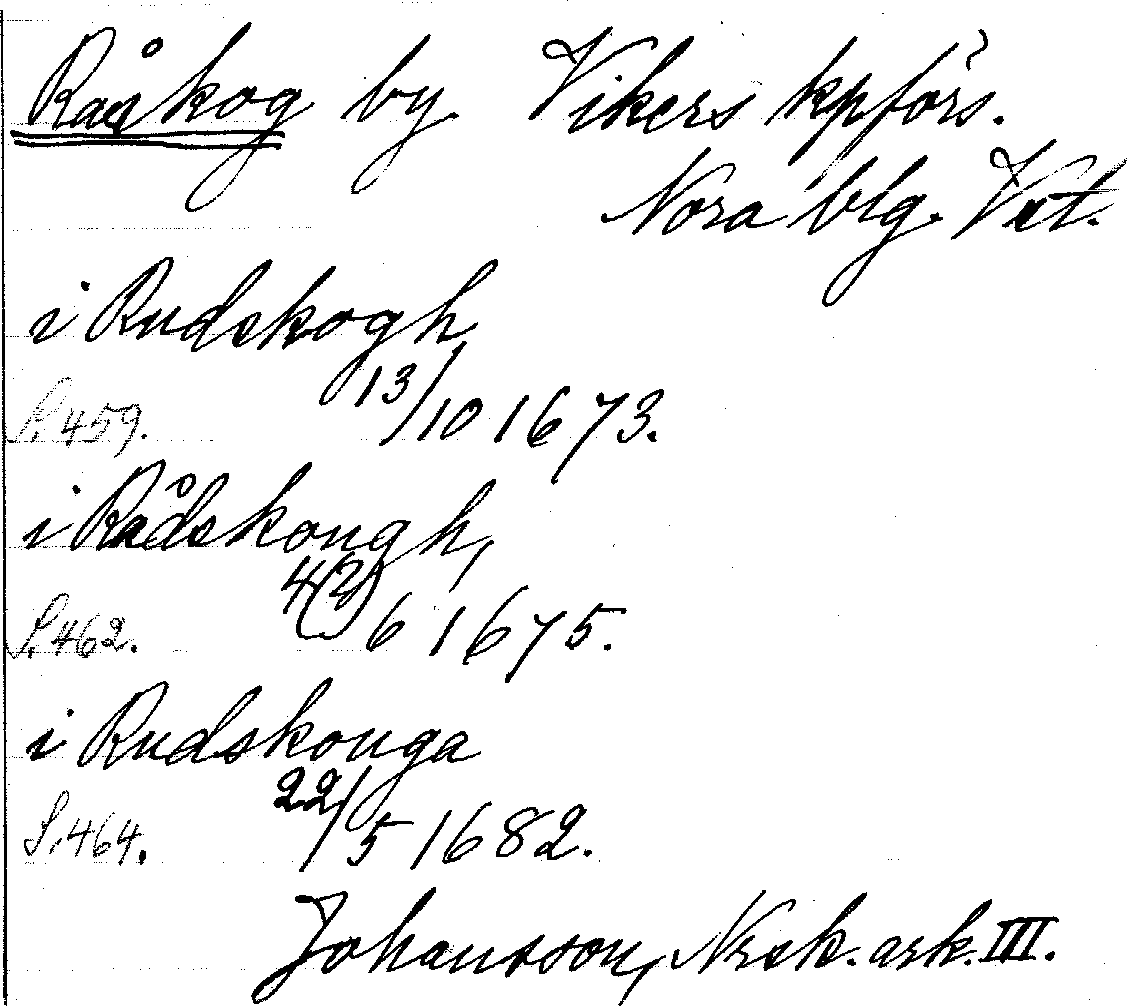 Råskog by Vikers kpförs.
Nora blg. Vstm.
i Rudskogh
S. 459. 13/10 1673.
i Rådskough,
S. 462. 4(?) 6 1675.
i Rudskouga
S. 464. 22/5 1682.
Johansson, Nrsk. ark. III.